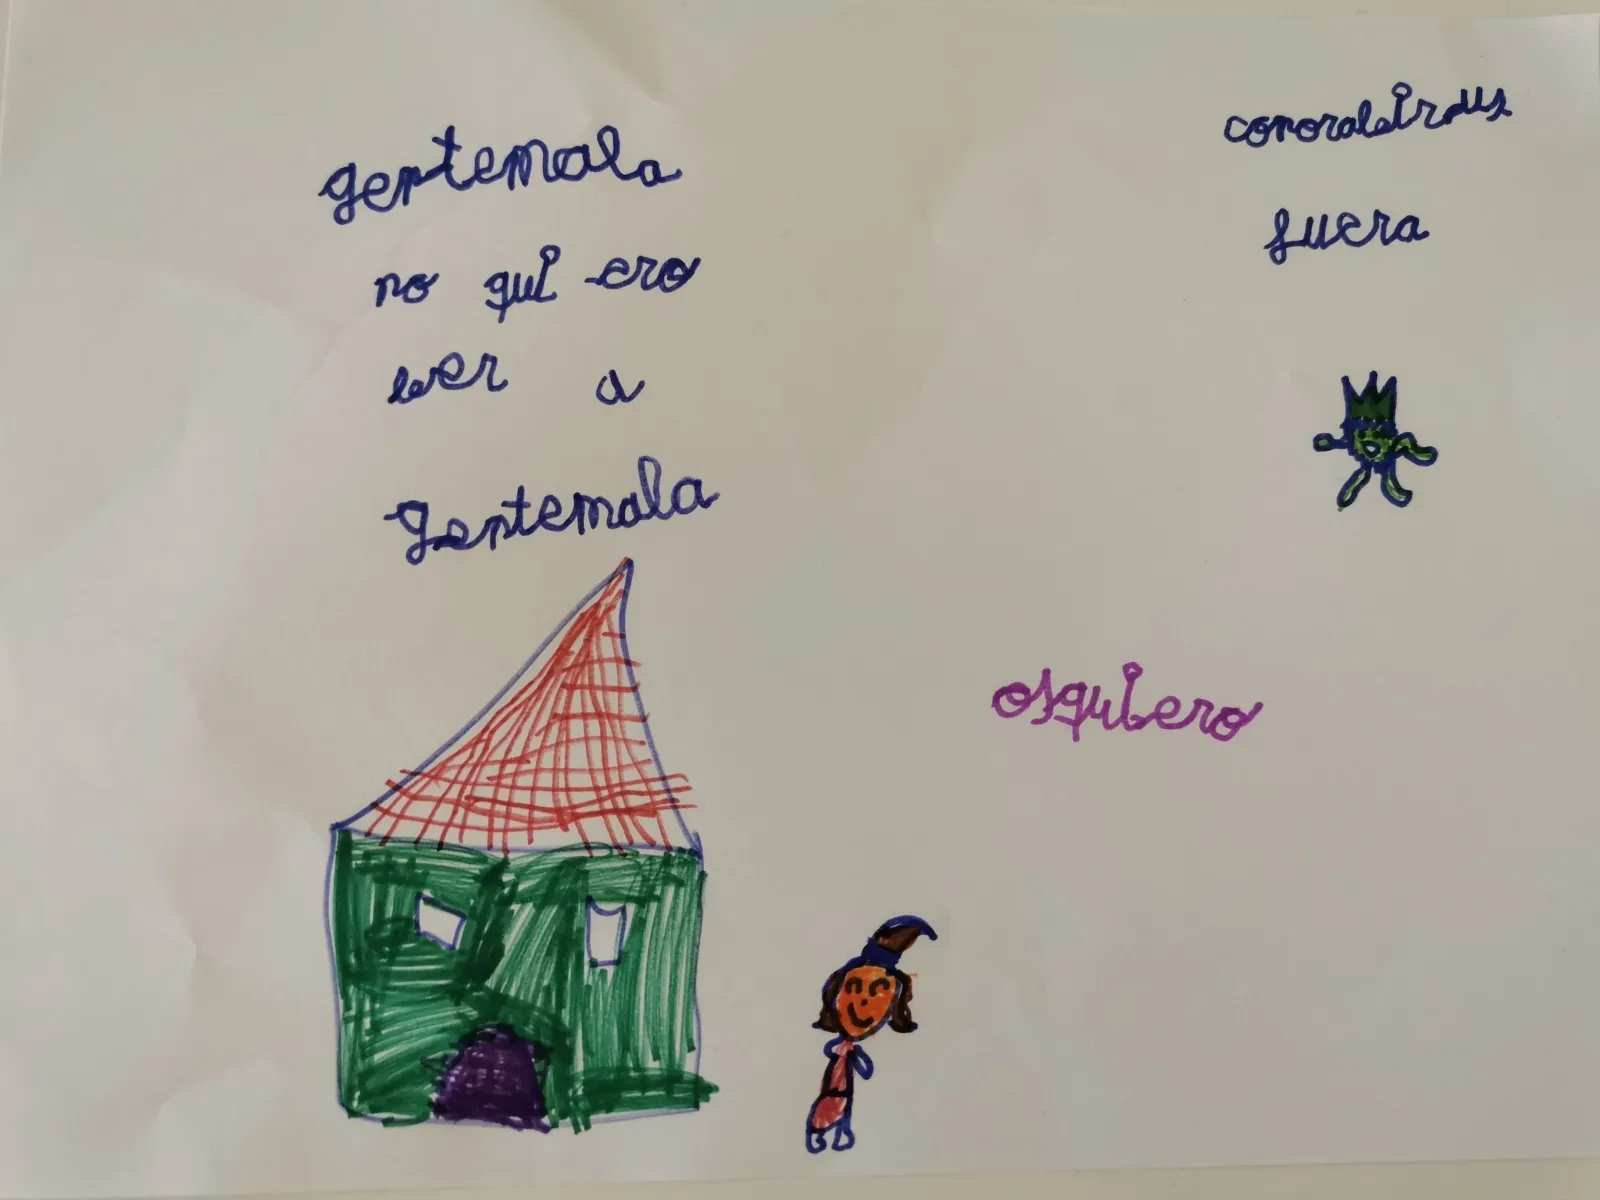 gentemala
no qui ero
leer a
gentemala
conoraleirdus
fuera
osquiero